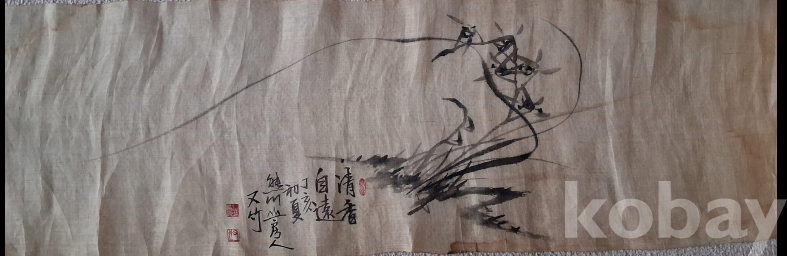 清香
自遠
丁亥
初夏
熊川山房人
又竹
kobay